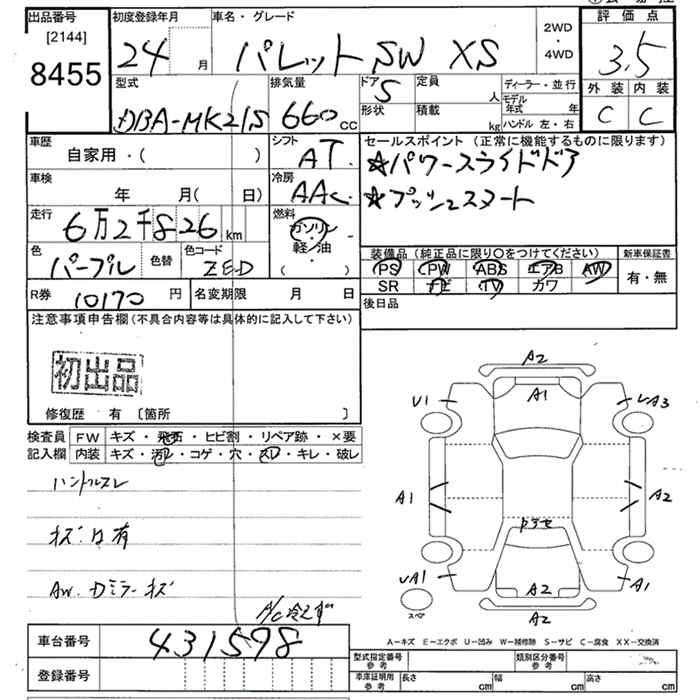 出品番号 初度登録年月 車名・グレード 2WD・4WD 評価点
[2144]
8455
24 月 パレットSW XS 3.5
外装 内装
C C
型式 排気量 ドア 定員 ディーラー・並行
DBA-MK21S 660cc 5 人 モデル年式 年
形状 積載 kg ハンドル 左・右
車歴 シフト セールスポイント (正常に機能するものに限ります)
自家用・( ) AT ☆パワースライドドア
車検 冷房 ☆プッシュスタート
年 月( 日) AAC
走行 燃料
6万2千826km ガソリン・軽油・( )
色 色替 色コード 装備品 (純正品に限り○をつけてください) 新車保証書
パープル ZED PS PW ABS エアB AW 有・無
SR ナビ TV カワ
R券 10170 円 名変期限 月 日 後日品
注意事項申告欄(不具合内容等は具体的に記入して下さい)
初出品
修復歴 有 〔箇所 〕
検査員 FW キズ・飛石・ヒビ割・リペア跡・×要
記入欄 内装 キズ・汚レ・コゲ・穴・スレ・キレ・破レ
ハンドルスレ
キズ凹有
AW.Dミラーキズ
A/C冷えず
A2
U1 A1 A3
A1 A2
UA1 A2 A1
スペア A2
A-キズ E-エクボ U-凹み W-補修跡 S-サビ C-腐食 XX-交換済
車台番号 431598
型式指定番号 参考 類別区分番号 参考
登録番号 車庫証明用 参考 長さ cm 幅 cm 高さ cm